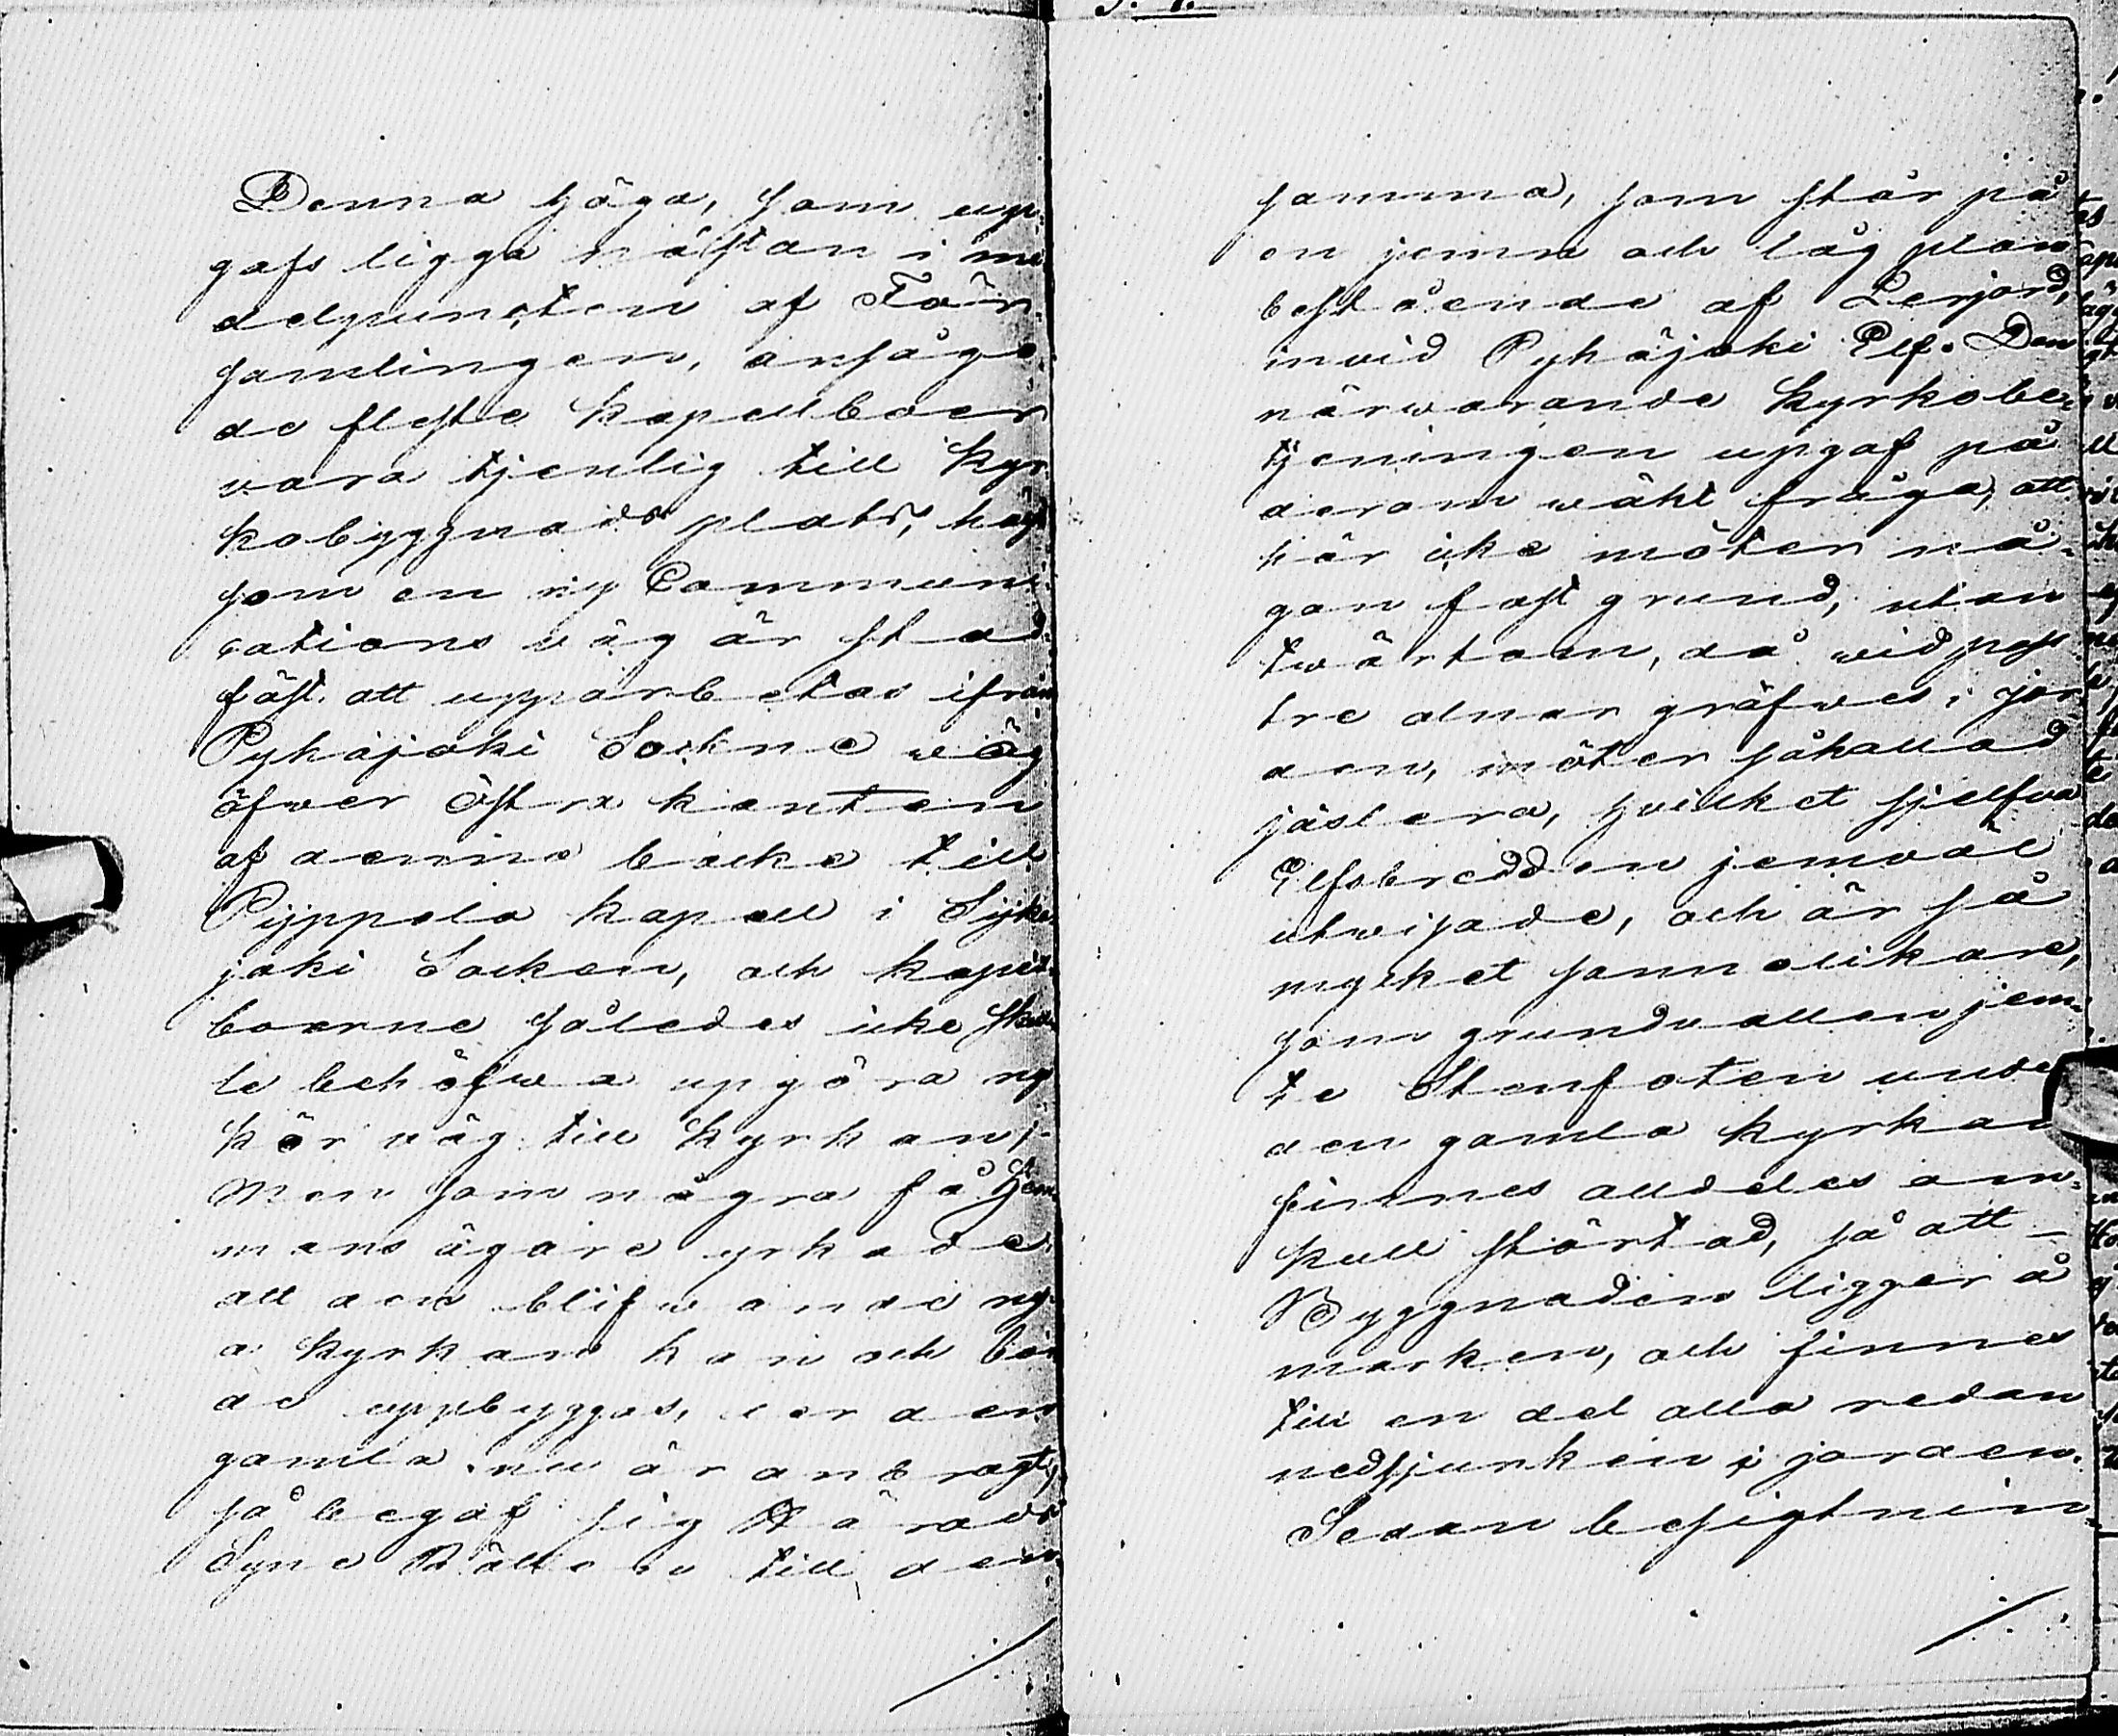 Denna höga, som up-
gafs ligga nästan i me
delpuncten af För-
samlingen, ansågo
de fleste kapellboer
vara tjenlig till kyr
kobyggnads plats, häls
som en ny Communi-
cations väg är stad-
fäst att upparbetas ifrån
Pyhäjoki Sockne wäg
öfwer östra kanten
af denna backe till
Pyppola kapell i Sijka
joki Socken, och kapell-
boerne således icke skul-
le behöfwa upgöra ny
kör wäg till kyrkan;
Men som några få Hem
mans ägare yrkade
att den blifwande ny-
a kyrkan kan och bör
de uppbyggas, der den
gamla nu är anbragt,
så begaf sig Härads
Syne Rätten till den
samma, som står på
en jemn och låg plan
bestående af Lerjord,
invid Pyhäjoki Elf. Den
närwarande kyrkobe-
tjeningen upgaf på
derom wäkt fråga, att
här icke möter nå-
gon fast grund, utan
twärtom, då wid pass
tre alnar gräfwes i jor
den, möter såkallad
jäslera, hvilket sjelfva
Elfsbredden jemväl
utwisade, och är så
mycket sannolikare,
som grundvallen jem-
te Stenfoten under
den gamla kyrkan
finnes alldeles om-
kull störtad, så att
Byggnaden ligger å
marken, och finnes
till en del alla redan
nedsjunken i jorden.
Sedan besigtnin-